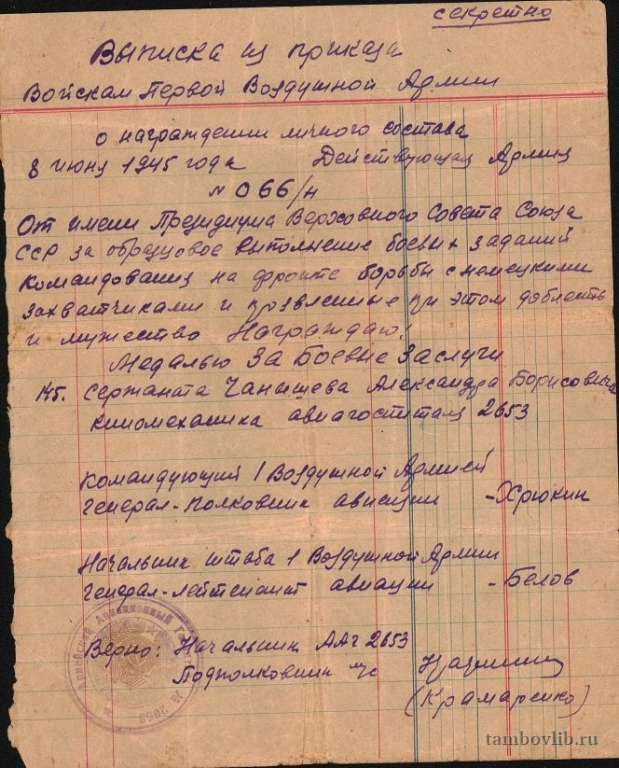 секретно
Выписка из приказа
Войскам Первой Воздушной Армии
о награждении личного состава
8 июня 1945 года Действующая Армия
№ 066/н
От имени Президиума Верховного Совета Союза
ССР за образцовое выполнение боевых заданий
командования на фронте борьбы с немецкими
захватчиками и проявленные при этом доблесть
и мужество Награждаю!
Медалью За Боевые Заслуги
145. Сержанта Чанышева Александра Борисовича
киномеханика авиагоспиталя 2653
Командующий 1 Воздушной Армией
генерал-полковник авиации -Хрюкин
Начальник штаба 1 Воздушной Армии
генерал-лейтенант авиации -Белов
Верно: Начальник ААГ 2653
Подполковник м/с
(Крамаренко)
Армейский Авиационный
№ 2653
tambovlib.ru